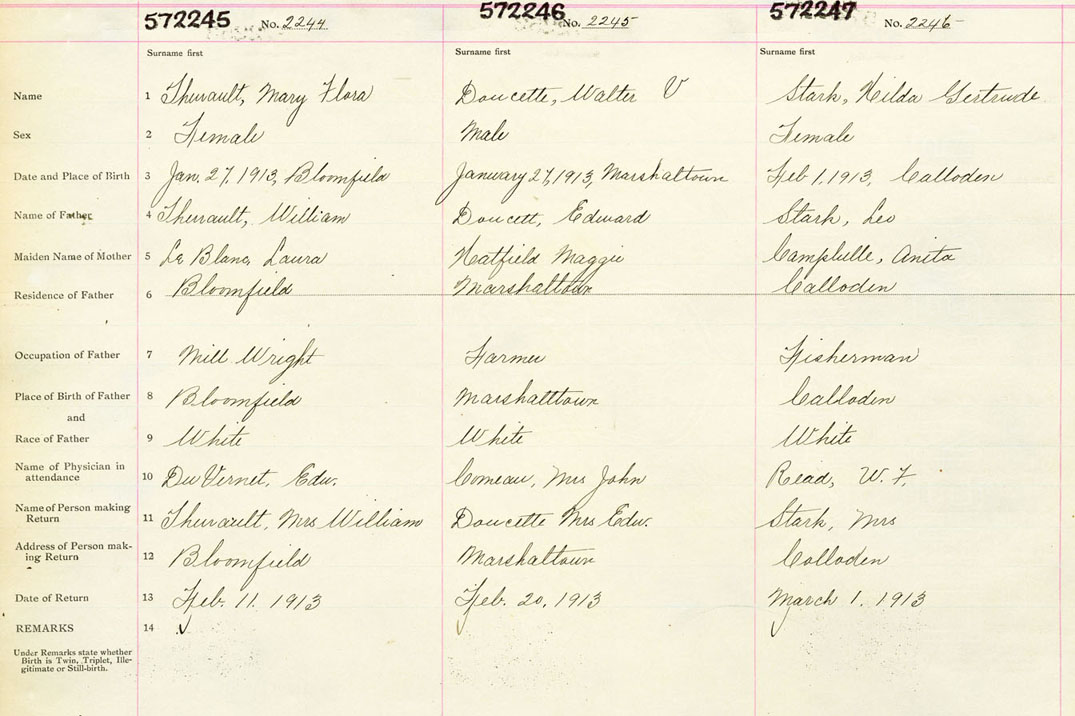 572245 No. 2244 572246 No. 2245 572247 No. 2246
Surname first Surname first Surname first
Name 1 Theriault, Mary Flora Doucette, Walter V Stark, Hilda Gertrude
Sex 2 Female Male Female
Date and Place of Birth 3 Jan. 27, 1913, Bloomfield January 27, 1913, Marshaltown Feb 1, 1913, Calloden
Name of Father 4 Theriault, William Doucett, Edward Stark, Leo
Maiden Name of Mother 5 Le Blanc, Laura Hatfield Maggie Campbelle, Anita
Residence of Father 6 Bloomfield Marshaltown Calloden
Occupation of Father 7 Mill Wright Farmer Fisherman
Place of Birth of Father 8 Bloomfield Marshalltown Calloden
and
Race of Father 9 White White White
Name of Physician in
attendance 10 Du Vernet, Edw. Comeau, Mrs John Read, W. F.
Name of Person making
Return 11 Theriault, Mrs William Doucette Mrs Edw. Stark, Mrs
Address of Person mak-
ing Return 12 Bloomfield Marshaltown Colloden
Date of Return 13 Feb. 11. 1913 Feb. 20, 1913 March 1. 1913
REMARKS 14
Under Remarks state whether
Birth is Twin, Triplet, Ille-
gitimate or Still-birth.